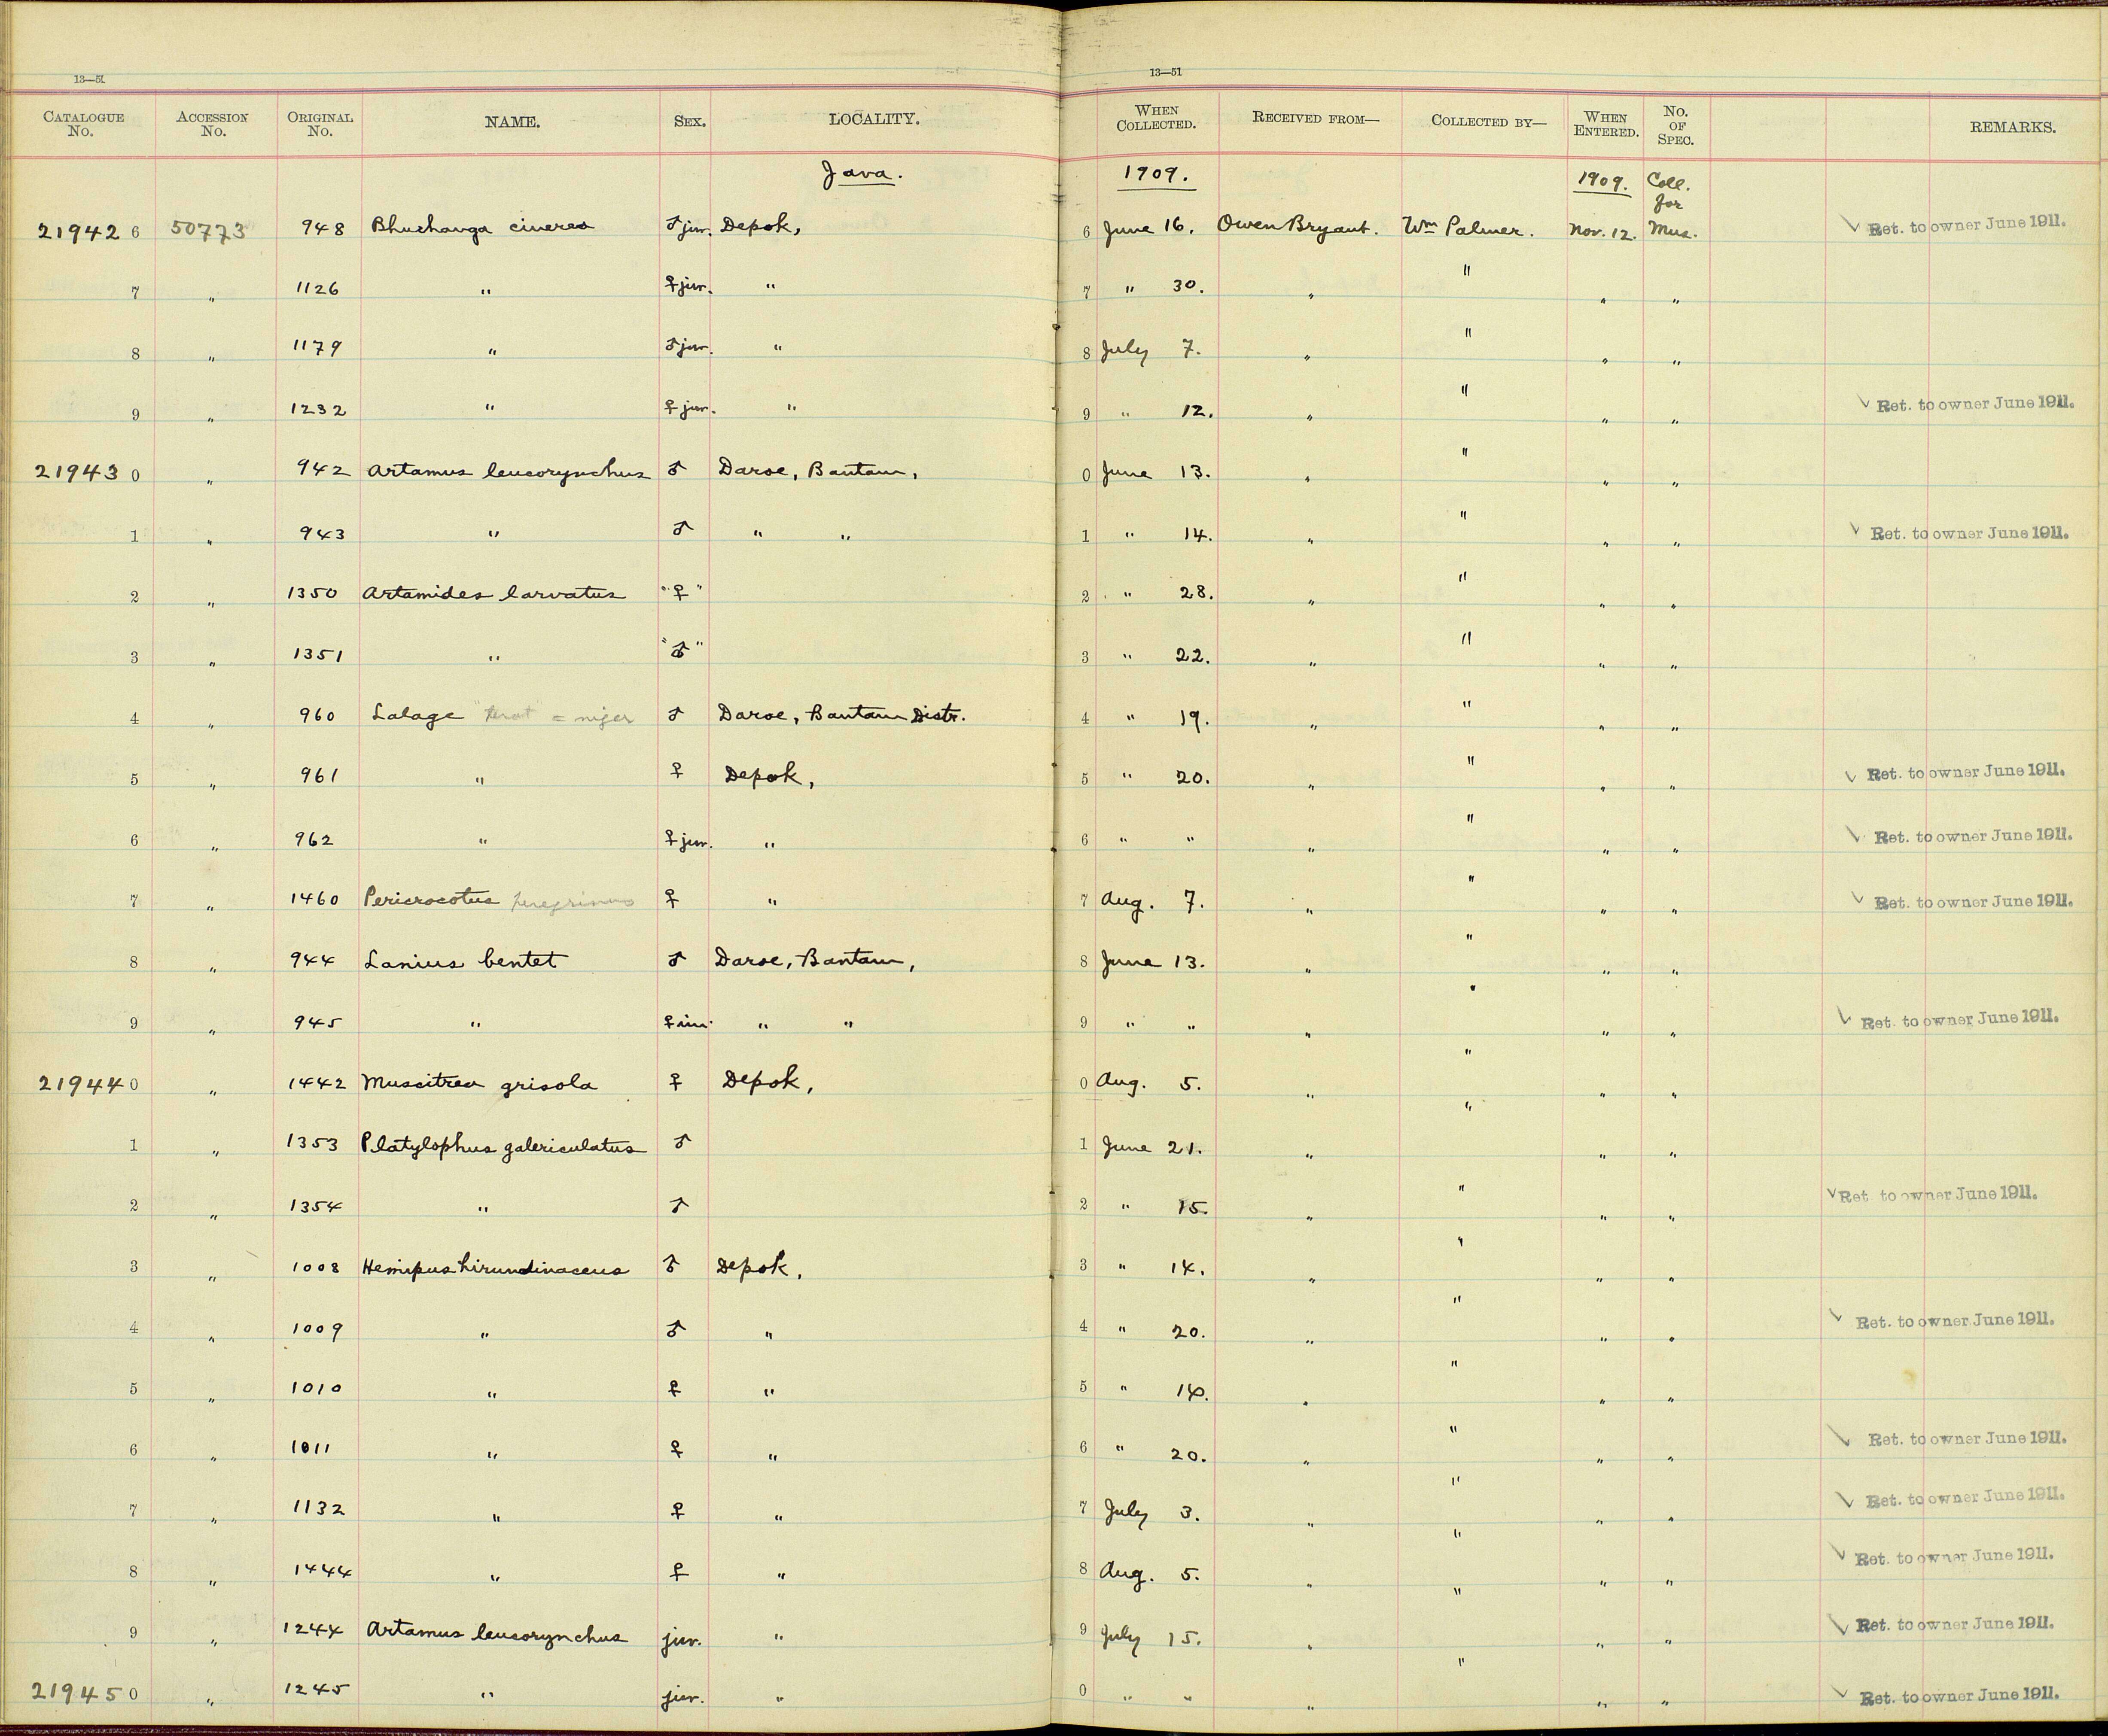 13—51
13—51
CATALOGUE No. ACCESSION No. ORIGINAL No. NAME. SEX. LOCALITY. WHEN COLLECTED. RECEIVED FROM— COLLECTED BY— WHEN ENTERED. No. OF SPEC. REMARKS.
Java. 1909. 1909. Coll. for
21942 6 50773 948 Bhuchanga cinerea ♂ juv. Depok, 6 June 16. Owen Bryant. Wm Palmer. Nov. 12. Mus. ✓ Ret. to owner June 1911.
7 " 1126 " ♀ juv. " 7 " 30. " " " "
8 " 1179 " ♂ juv. " 8 July 7. " " " "
9 " 1232 " ♀ juv. " 9 " 12. " " " " ✓ Ret. to owner June 1911.
21943 0 " 942 Artamus leucorynchus ♂ Daroe, Bantam, 0 June 13. " " " "
1 " 943 " ♂ " " 1 " 14. " " " " ✓ Ret. to owner June 1911.
2 " 1350 Artamides larvatus "♀" 2 " 28. " " " "
3 " 1351 " "♂" 3 " 22. " " " "
4 " 960 Lalage "terat" = niger ♂ Daroe, Bantam Distr. 4 " 19. " " " "
5 " 961 " ♀ Depok, 5 " 20. " " " " ✓ Ret. to owner June 1911.
6 " 962 " ♀ juv. " 6 " " " " " " ✓ Ret. to owner June 1911.
7 " 1460 Pericrocotus peregrinus ♀ " 7 Aug. 7. " " " " ✓ Ret. to owner June 1911.
8 " 944 Lanius bentet ♂ Daroe, Bantam, 8 June 13. " " " "
9 " 945 " ♀ im. " " 9 " " " " " " ✓ Ret. to owner June 1911.
21944 0 " 1442 Muscitrea grisola ♀ Depok, 0 Aug. 5. " " " "
1 " 1353 Platylophus galericulatus ♂ 1 June 21. " " " "
2 " 1354 " ♂ 2 " 15. " " " " ✓ Ret. to owner June 1911.
3 " 1008 Hemipus hirundinaceus ♂ Depok, 3 " 14. " " " "
4 " 1009 " ♂ " 4 " 20. " " " " ✓ Ret. to owner June 1911.
5 " 1010 " ♀ " 5 " " " " "
6 " 1011 " ♀ " 6 " 20. " " " " ✓ Ret. to owner June 1911.
7 " 1132 " ♀ " 7 July 3. " " " " ✓ Ret. to owner June 1911.
8 " 1444 " ♀ " 8 Aug. 5. " " " " ✓ Ret. to owner June 1911.
9 " 1244 Artamus leucorynchus juv. " 9 July 15. " " " " ✓ Ret. to owner June 1911.
21945 0 " 1245 " juv. " 0 " " " " " " ✓ Ret. to owner June 1911.